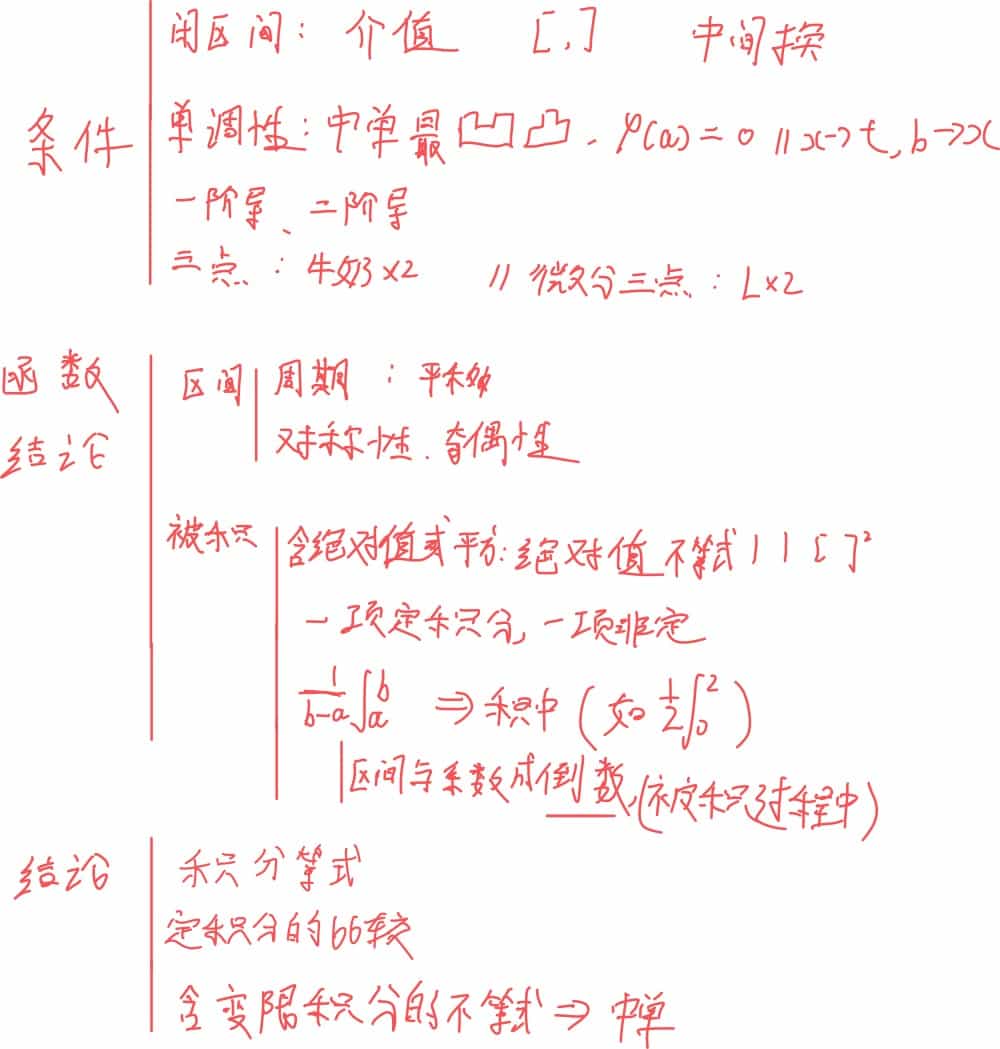 条件
闭区间：介值 [,] 中间换
单调性：中单最凹凸. φ(a)=0 // x→t, b→x
一阶导、二阶导
三点：牛奶×2 // 微分三点：L×2
函数
结论
区间
周期：平移
对称性.奇偶性
被积
含绝对值或平方：绝对值不等式 | | [ ]²
一项定积分，一项非定
1/(b-a) ∫ₐᵇ ⇒ 积中 (如 1/2 ∫₀²)
区间与系数成倒数，(被积过程中)
结论
积分等式
定积分的比较
含变限积分的不等式 ⇒ 中单